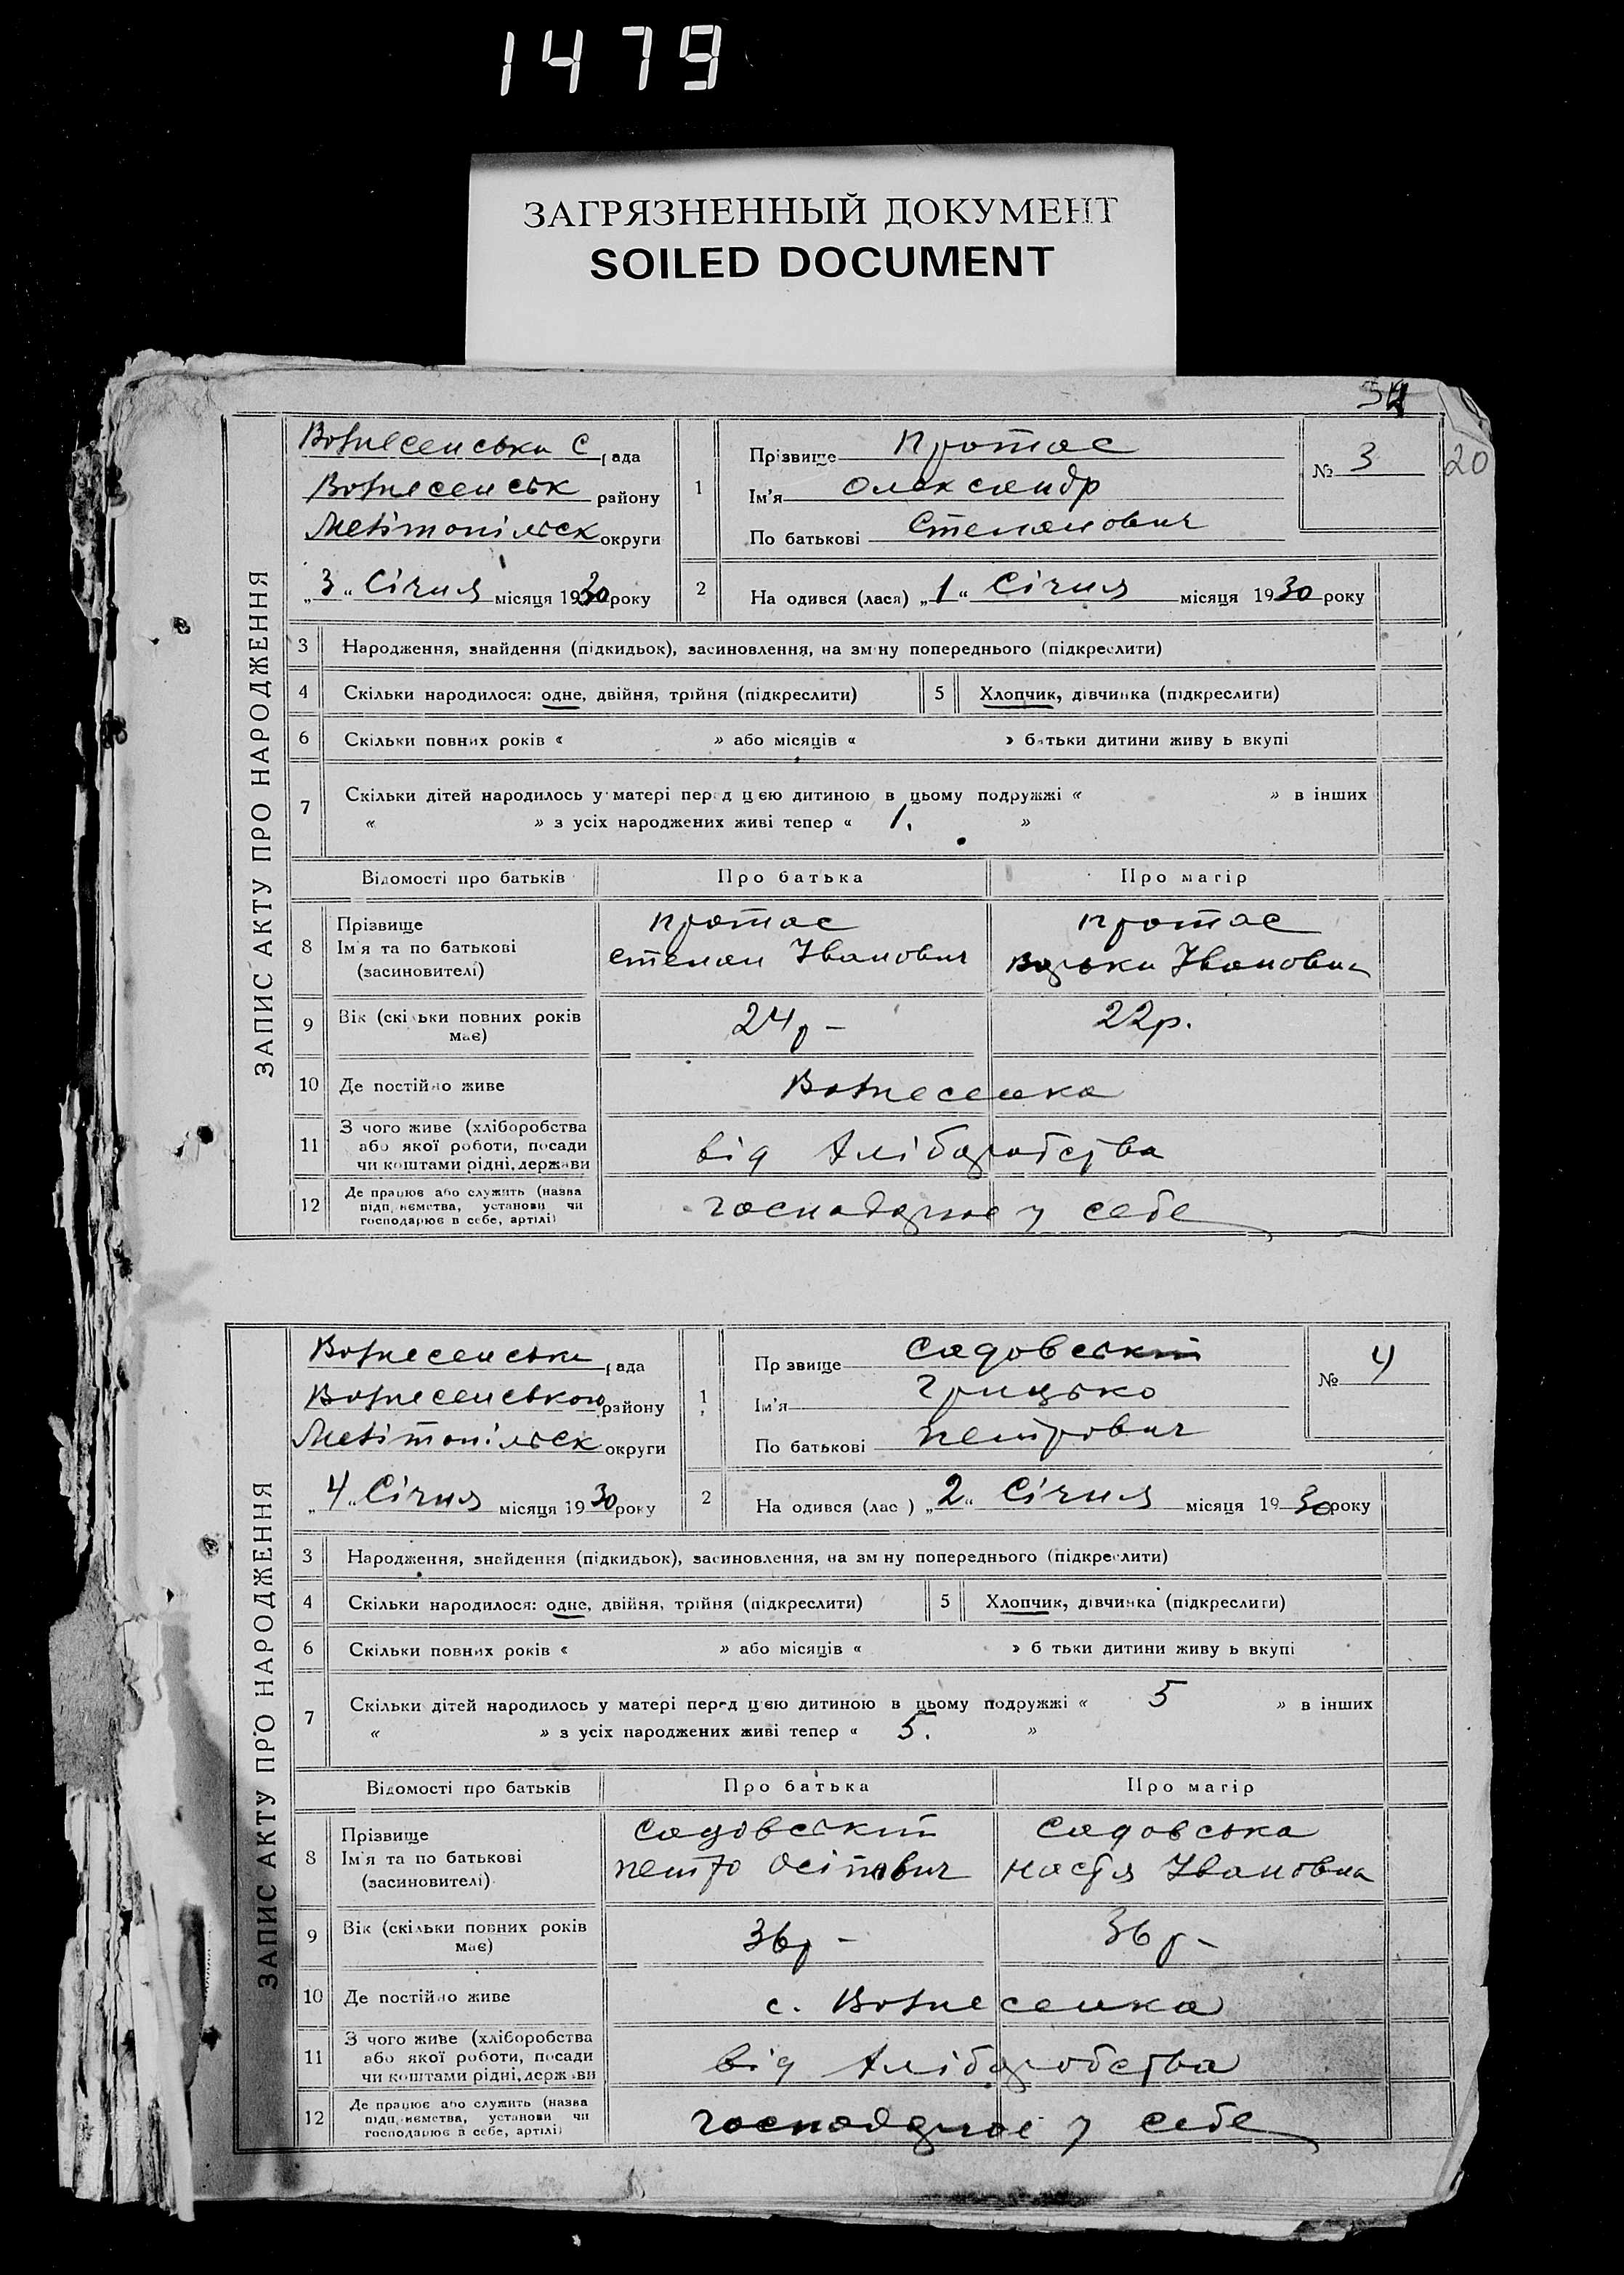 1479
ЗАГРЯЗНЕННЫЙ ДОКУМЕНТ
SOILED DOCUMENT
20
ЗАПИС АКТУ ПРО НАРОДЖЕННЯ
Вознесенська С рада
Вознесенськ району
Мелітопільськ округи
„3“ Січня місяця 1930 року
1
Прізвище Протас
Ім'я Олександр
По батькові Степанович
№ 3
2
На одився (лася) „1“ Січня місяця 1930 року
3 Народження, знайдення (підкидьок), засиновлення, на зм ну попереднього (підкреслити)
4 Скільки народилося: одне, двійня, трійня (підкреслити) 5 Хлопчик, дівчинка (підкреслити)
6 Скільки повних років « » або місяців « » батьки дитини живу ь вкупі
7 Скільки дітей народилось у матері перед цією дитиною в цьому подружжі « » в інших
« » з усіх народжених живі тепер « 1. »
Відомості про батьків Про батька Про матір
8 Прізвище
Ім'я та по батькові
(засиновителі)
Протас
Степан Іванович
Протас
Івановна
9 Вік (скільки повних років
має)
24 р - 22р.
10 Де постійно живе Вознесенка
11 З чого живе (хліборобства
або якої роботи, посади
чи коштами рідні, держави
від хліборобства
12 Де працює або служить (назва
підп иємства, установи чи
господарює в себе, артілі)
господарює у себе
ЗАПИС АКТУ ПРО НАРОДЖЕННЯ
Вознесенська рада
Вознесенського району
Мелітопільськ округи
„4“ Січня місяця 1930 року
1
Пр звище Садовський
Ім'я Грицько
По батькові Петрович
№ 4
2
На одився (лас ) „2“ Січня місяця 1930 року
3 Народження, знайдення (підкидьок), засиновлення, на зм ну попереднього (підкреслити)
4 Скільки народилося: одне, двійня, трійня (підкреслити) 5 Хлопчик, дівчинка (підкреслити)
6 Скільки повних років « » або місяців « » б тьки дитини живу ь вкупі
7 Скільки дітей народилось у матері перед цією дитиною в цьому подружжі « 5 » в інших
« » з усіх народжених живі тепер « 5. »
Відомості про батьків Про батька Про матір
8 Прізвище
Ім'я та по батькові
(засиновителі)
Садовський
Петро Осіпович
Садовська
Настя Івановна
9 Вік (скільки повних років
має)
36р - 36 р -
10 Де постійно живе с. Вознесенка
11 З чого живе (хліборобства
або якої роботи, посади
чи коштами рідні, держ ви
від хліборобства
12 Де працює або служить (назва
підп иємства, установи чи
господарює в себе, артілі)
господарює у себе